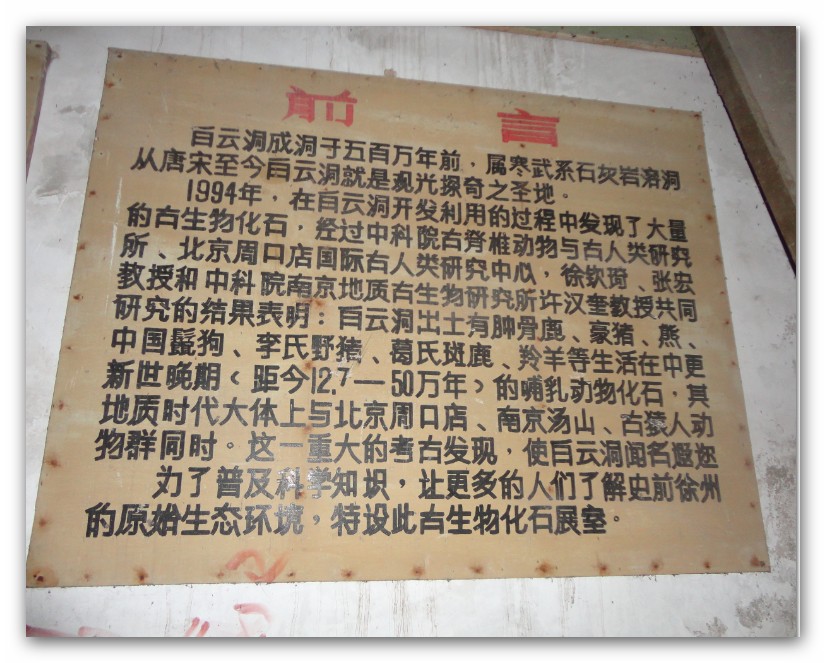 前言
白云洞成洞于五百万年前，属寒武系石灰岩溶洞
从唐宋至今白云洞就是观光探奇之圣地。
1994年，在白云洞开发利用的过程中发现了大量
的古生物化石，经过中科院古脊椎动物与古人类研究
所、北京周口店国际古人类研究中心，徐钦琦、张宏
教授和中科院南京地质古生物研究所许汉奎教授共同
研究的结果表明：白云洞出土有肿骨鹿、豪猪、熊、
中国鬣狗、李氏野猪、葛氏斑鹿、羚羊等生活在中更
新世晚期（距今12.7—50万年）的哺乳动物化石，其
地质时代大体上与北京周口店、南京汤山、古猿人动
物群同时。这一重大的考古发现，使白云洞闻名遐迩
为了普及科学知识，让更多的人们了解史前徐州
的原始生态环境，特设此古生物化石展室。